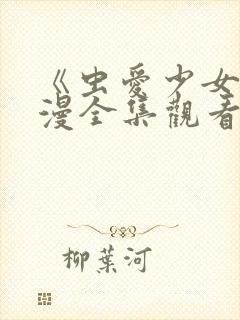 《虫愛少女
漫全集觀看
柳葉河